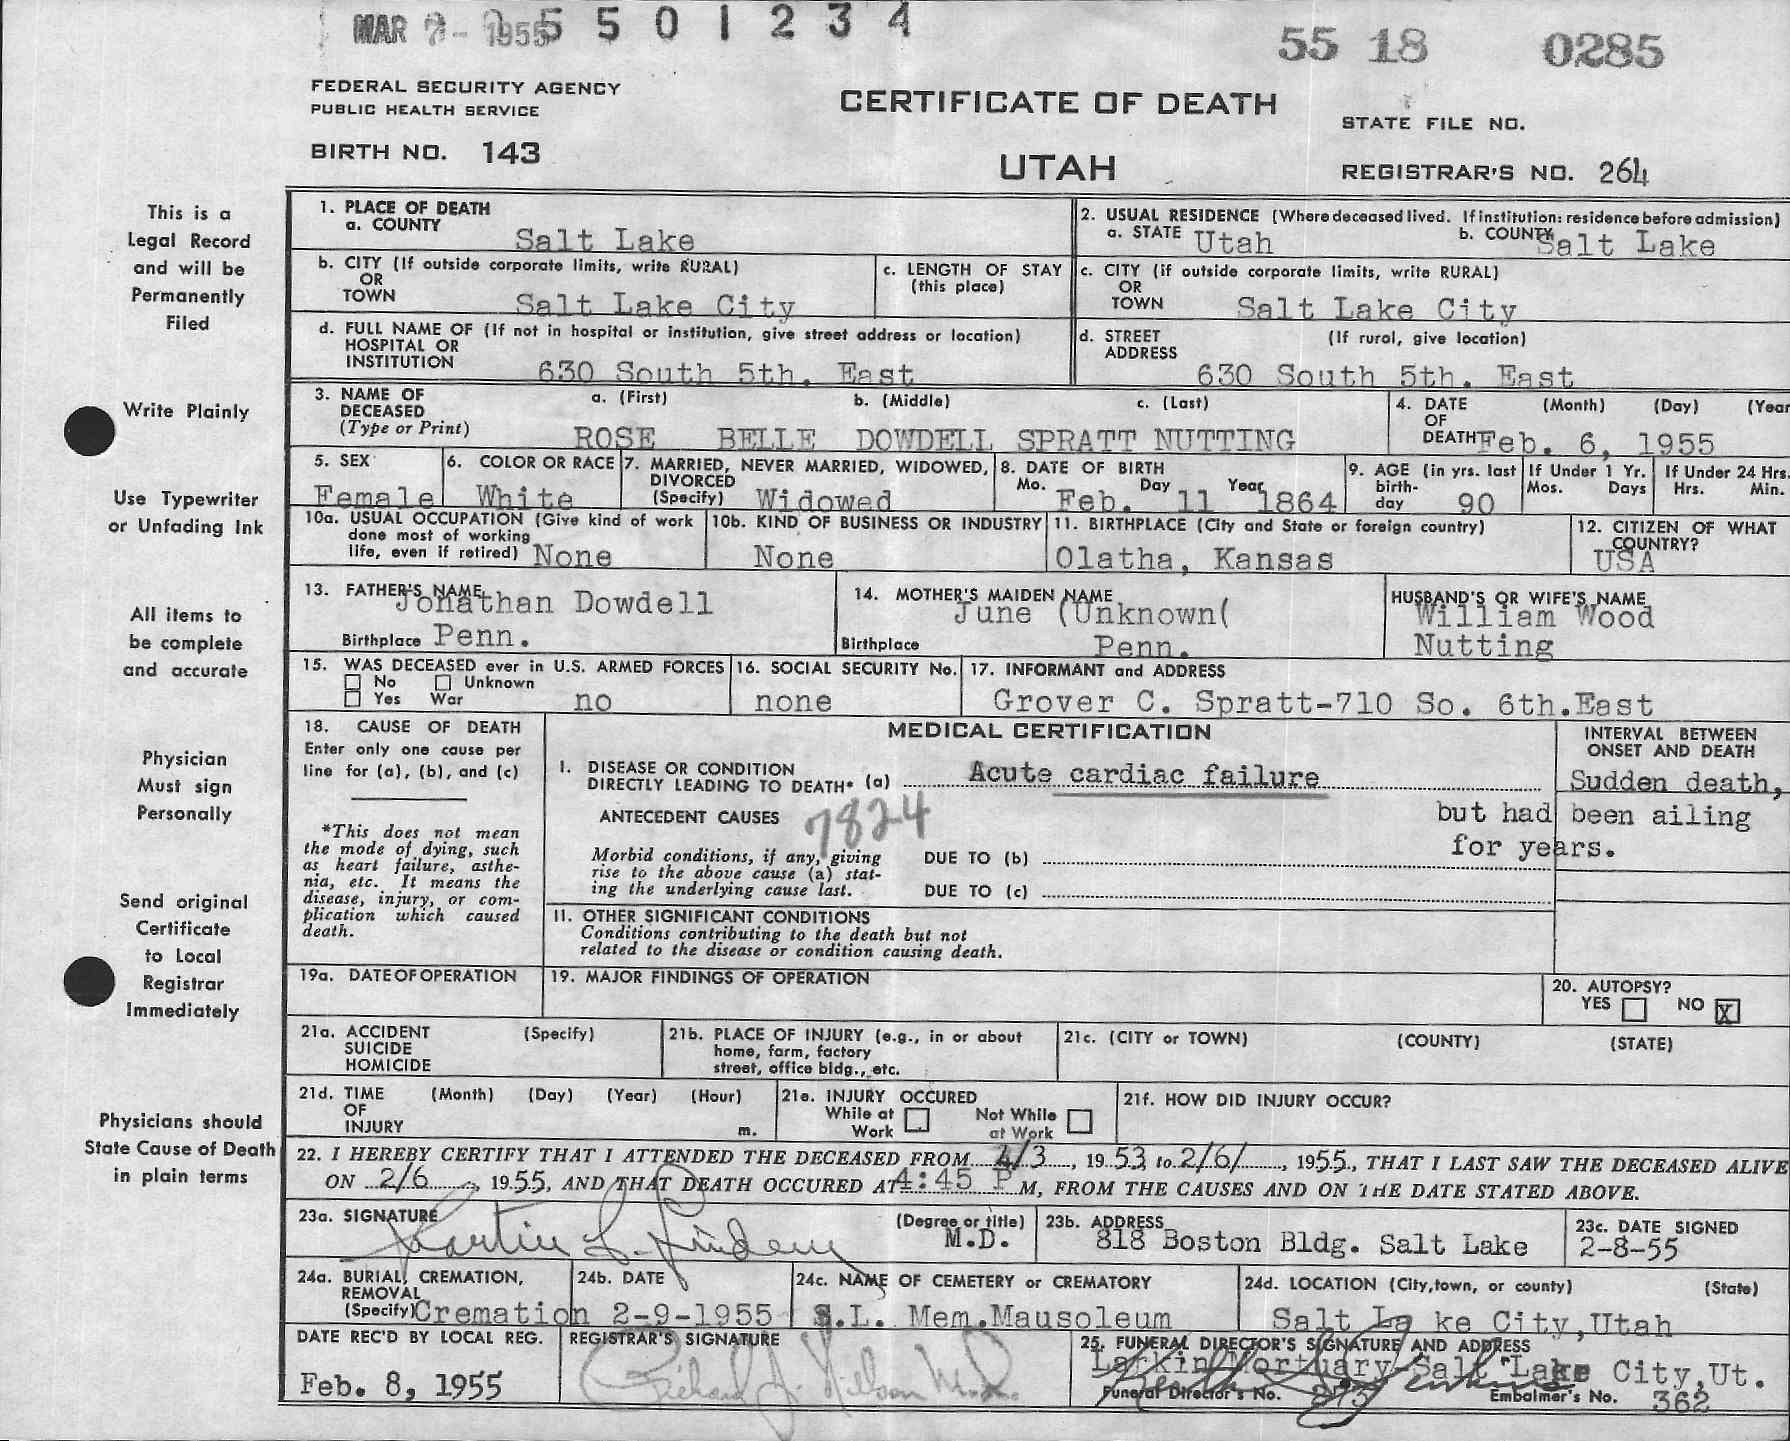 MAR 7- 1955 5 5 0 1 2 3 4
55 18 0285
FEDERAL SECURITY AGENCY
PUBLIC HEALTH SERVICE
CERTIFICATE OF DEATH
STATE FILE NO.
BIRTH NO. 143
UTAH
REGISTRAR'S NO. 264
This is a
Legal Record
and will be
Permanently
Filed
Write Plainly
Use Typewriter
or Unfading Ink
All items to
be complete
and accurate
Physician
Must sign
Personally
Send original
Certificate
to Local
Registrar
Immediately
Physicians should
State Cause of Death
in plain terms
1. PLACE OF DEATH
a. COUNTY Salt Lake
2. USUAL RESIDENCE (Where deceased lived. If institution: residence before admission)
a. STATE Utah b. COUNTY Salt Lake
b. CITY (If outside corporate limits, write RURAL)
OR
TOWN Salt Lake City
c. LENGTH OF STAY
(this place)
c. CITY (if outside corporate limits, write RURAL)
OR
TOWN Salt Lake City
d. FULL NAME OF (If not in hospital or institution, give street address or location)
HOSPITAL OR
INSTITUTION 630 South 5th. East
d. STREET (If rural, give location)
ADDRESS
630 South 5th. East
3. NAME OF a. (First) b. (Middle) c. (Last)
DECEASED
(Type or Print) ROSE BELLE DOWDELL SPRATT NUTTING
4. DATE (Month) (Day) (Year
OF
DEATH Feb. 6, 1955
5. SEX
Female
6. COLOR OR RACE
White
7. MARRIED, NEVER MARRIED, WIDOWED,
DIVORCED
(Specify) Widowed
8. DATE OF BIRTH
Mo. Day Year
Feb. 11 1864
9. AGE (in yrs. last
birth-
day 90
If Under 1 Yr.
Mos. Days
If Under 24 Hrs.
Hrs. Min.
10a. USUAL OCCUPATION (Give kind of work
done most of working
life, even if retired) None
10b. KIND OF BUSINESS OR INDUSTRY
None
11. BIRTHPLACE (City and State or foreign country)
Olatha, Kansas
12. CITIZEN OF WHAT
COUNTRY?
USA
13. FATHER'S NAME
Jonathan Dowdell
Birthplace Penn.
14. MOTHER'S MAIDEN NAME
June (Unknown(
Birthplace Penn.
HUSBAND'S OR WIFE'S NAME
William Wood
Nutting
15. WAS DECEASED ever in U.S. ARMED FORCES
No Unknown
Yes War no
16. SOCIAL SECURITY No.
none
17. INFORMANT and ADDRESS
Grover C. Spratt-710 So. 6th.East
18. CAUSE OF DEATH
Enter only one cause per
line for (a), (b), and (c)
*This does not mean
the mode of dying, such
as heart failure, asthe-
nia, etc. It means the
disease, injury, or com-
plication which caused
death.
MEDICAL CERTIFICATION
INTERVAL BETWEEN
ONSET AND DEATH
I. DISEASE OR CONDITION
DIRECTLY LEADING TO DEATH* (a) Acute cardiac failure
Sudden death,
but had been ailing
for years.
ANTECEDENT CAUSES
7824
Morbid conditions, if any, giving
rise to the above cause (a) stat-
ing the underlying cause last.
DUE TO (b)
DUE TO (c)
II. OTHER SIGNIFICANT CONDITIONS
Conditions contributing to the death but not
related to the disease or condition causing death.
19a. DATE OF OPERATION
19. MAJOR FINDINGS OF OPERATION
20. AUTOPSY?
YES NO X
21a. ACCIDENT (Specify)
SUICIDE
HOMICIDE
21b. PLACE OF INJURY (e.g., in or about
home, farm, factory
street, office bldg., etc.
21c. (CITY or TOWN) (COUNTY) (STATE)
21d. TIME (Month) (Day) (Year) (Hour)
OF
INJURY m.
21e. INJURY OCCURED
While at Work Not While at Work
21f. HOW DID INJURY OCCUR?
22. I HEREBY CERTIFY THAT I ATTENDED THE DECEASED FROM 2/3, 1953, to 2/6/, 1955, THAT I LAST SAW THE DECEASED ALIVE
ON 2/6, 1955, AND THAT DEATH OCCURED AT 4:45 P M, FROM THE CAUSES AND ON THE DATE STATED ABOVE.
23a. SIGNATURE (Degree or title)
Martin C. Lindem M.D.
23b. ADDRESS
818 Boston Bldg. Salt Lake
23c. DATE SIGNED
2-8-55
24a. BURIAL, CREMATION,
REMOVAL
(Specify) Cremation
24b. DATE
2-9-1955
24c. NAME OF CEMETERY or CREMATORY
S.L. Mem.Mausoleum
24d. LOCATION (City,town, or county) (State)
Salt La ke City,Utah
DATE REC'D BY LOCAL REG.
Feb. 8, 1955
REGISTRAR'S SIGNATURE
Richard J. Nelson M.D.
25. FUNERAL DIRECTOR'S SIGNATURE AND ADDRESS
Larkin Mortuary-Salt Lake City,Ut.
Funeral Director's No. 273 Embalmer's No. 362